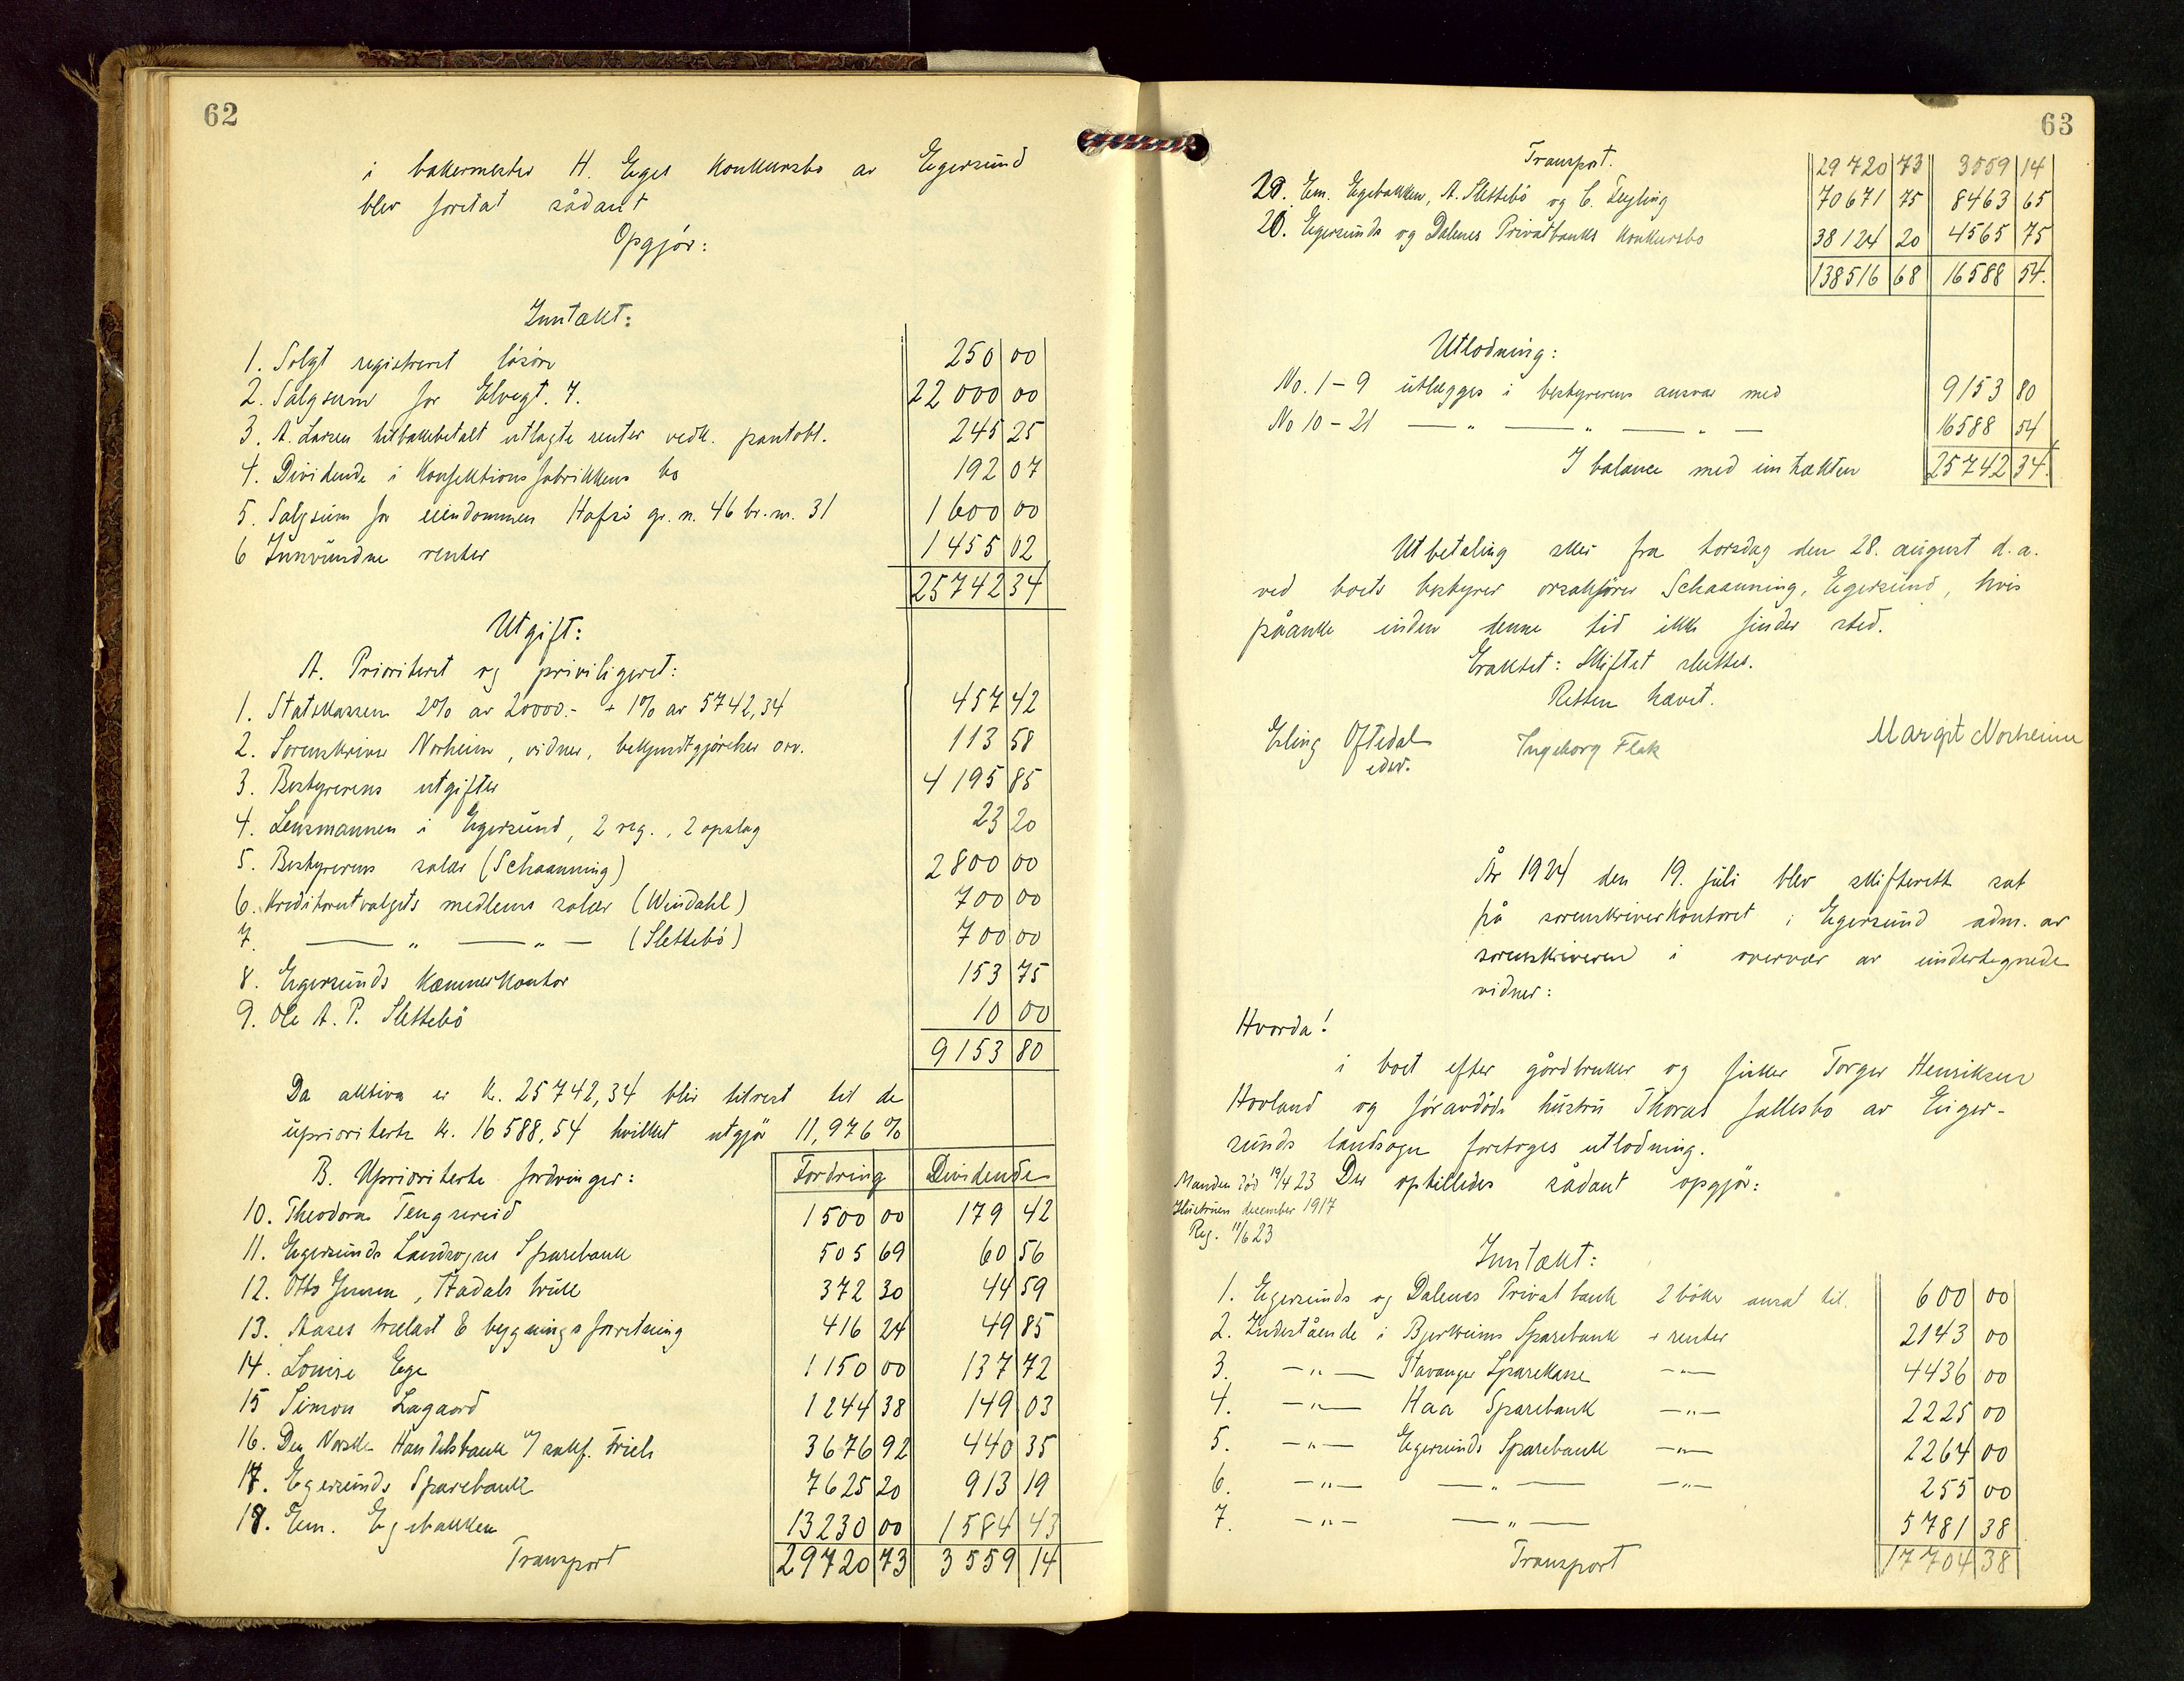 62
i bakermester H. Eges Konkursbo av Egersund
blev foretat sådant
Opgjör:
Inntækt:
1. Solgt registreret lösöre 250 00
2. Salgsum for Elvegt. 7. 22000 00
3. A. Larsen tilbakebetalt utlagte renter vedk. pantobl. 245 25
4. Dividende i Konfektionsfabrikkens bo 192 07
5. Salgsum for eiendommen Hafsö gr. n. 46 br. nr. 31 1600 00
6 Innvundne renter 1455 02
25742 34
Utgift:
A. Prioriteret og priviligeret:
1. Statskassen 2% av 20000.- + 1% av 5742,34 457 42
2. Sorenskriver Norheim, vidner, bekjendtgjörelser osv. 113 58
3. Bestyrerens utgifter 4195 85
4. Lensmannen i Egersund, 2 reg., 2 opslag 23 20
5. Bestyrerens salær (Schaanning) 2800 00
6. Kreditorutvalgets medlems salær (Windahl) 700 00
7. — „ — „ — (Slettebö) 700 00
8. Egersunds Kæmnerkontor 153 75
9. Ole A. P. Slettebö 10 00
9153 80
Da aktiva er kr. 25742,34 blir tilrest til de
uprioriterte kr. 16588,54 hvilket utgjör 11,976%
B. Uprioriterte fordringer: Fordring Dividende
10. Theodora Tengsereid 1500 00 179 42
11. Egersunds Landsogns Sparebank 505 69 60 56
12. Otto Jensen, Stadals bruk 372 30 44 59
13. Aases trælast & bygningsforretning 416 24 49 85
14. Louise Ege 1150 00 137 72
15 Simon Lagaard 1244 38 149 03
16. Den Norske Handelsbank v/ sakf. Friels 3676 92 440 35
17. Egersunds Sparebank 7625 20 913 19
18. Em. Egebakken 13230 00 1584 43
Transport 29720 73 3559 14
63
Transport. 29720 73 3559 14
19. Em. Egebakken, A. Slettebö og C. Feyling 70671 75 8463 65
20. Egersunds og Dalenes Privatbanks Konkursbo 38124 20 4565 75
138516 68 16588 54.
Utlodning:
No. 1-9 utlægges i bestyrerens ansvar med 9153 80
No 10-21 — „ — „ — „ — 16588 54
I balance med inntækten 25742 34.
Utbetaling skjer fra torsdag den 28. august d.a.
ved boets bestyrer orsakförer Schaanning, Egersund, hvis
påanke inden denne tid ikke finder sted.
Eraktet: Skiftet sluttes.
Retten hævet.
Erling Oftedal Ingeborg Flak Margit Norheim
edsv.
År 1924 den 19. juli blev skifterett sat
på sorenskriverkontoret i Egersund adm. av
sorenskriveren i overvær av undertegnede
vidner:
Hvorda!
i boet efter gårdbruker og fisker Torger Henriksen
Hovland og föravdöde hustru Thora f. Sollesbo av Eiger-
sunds landsogn foretoges utlodning.
Manden död 19/4 23 Der opstilledes sådant opgjör:
Hustruen december 1917
Reg. 11/6 23
Inntækt:
1. Egersunds og Dalenes Privatbank 2 böker ansat til. 600 00
2. Indestående i Bjerkreims Sparebank + renter 2143 00
3. — „ — Stavanger Sparekasse — „ — 4436 00
4. — „ — Haa Sparebank — „ — 2225 00
5. — „ — Egersunds Sparebank — „ — 2264 00
6. — „ — — „ — — „ — 255 00
7. — „ — — „ — 5781 38
Transport 17704 38